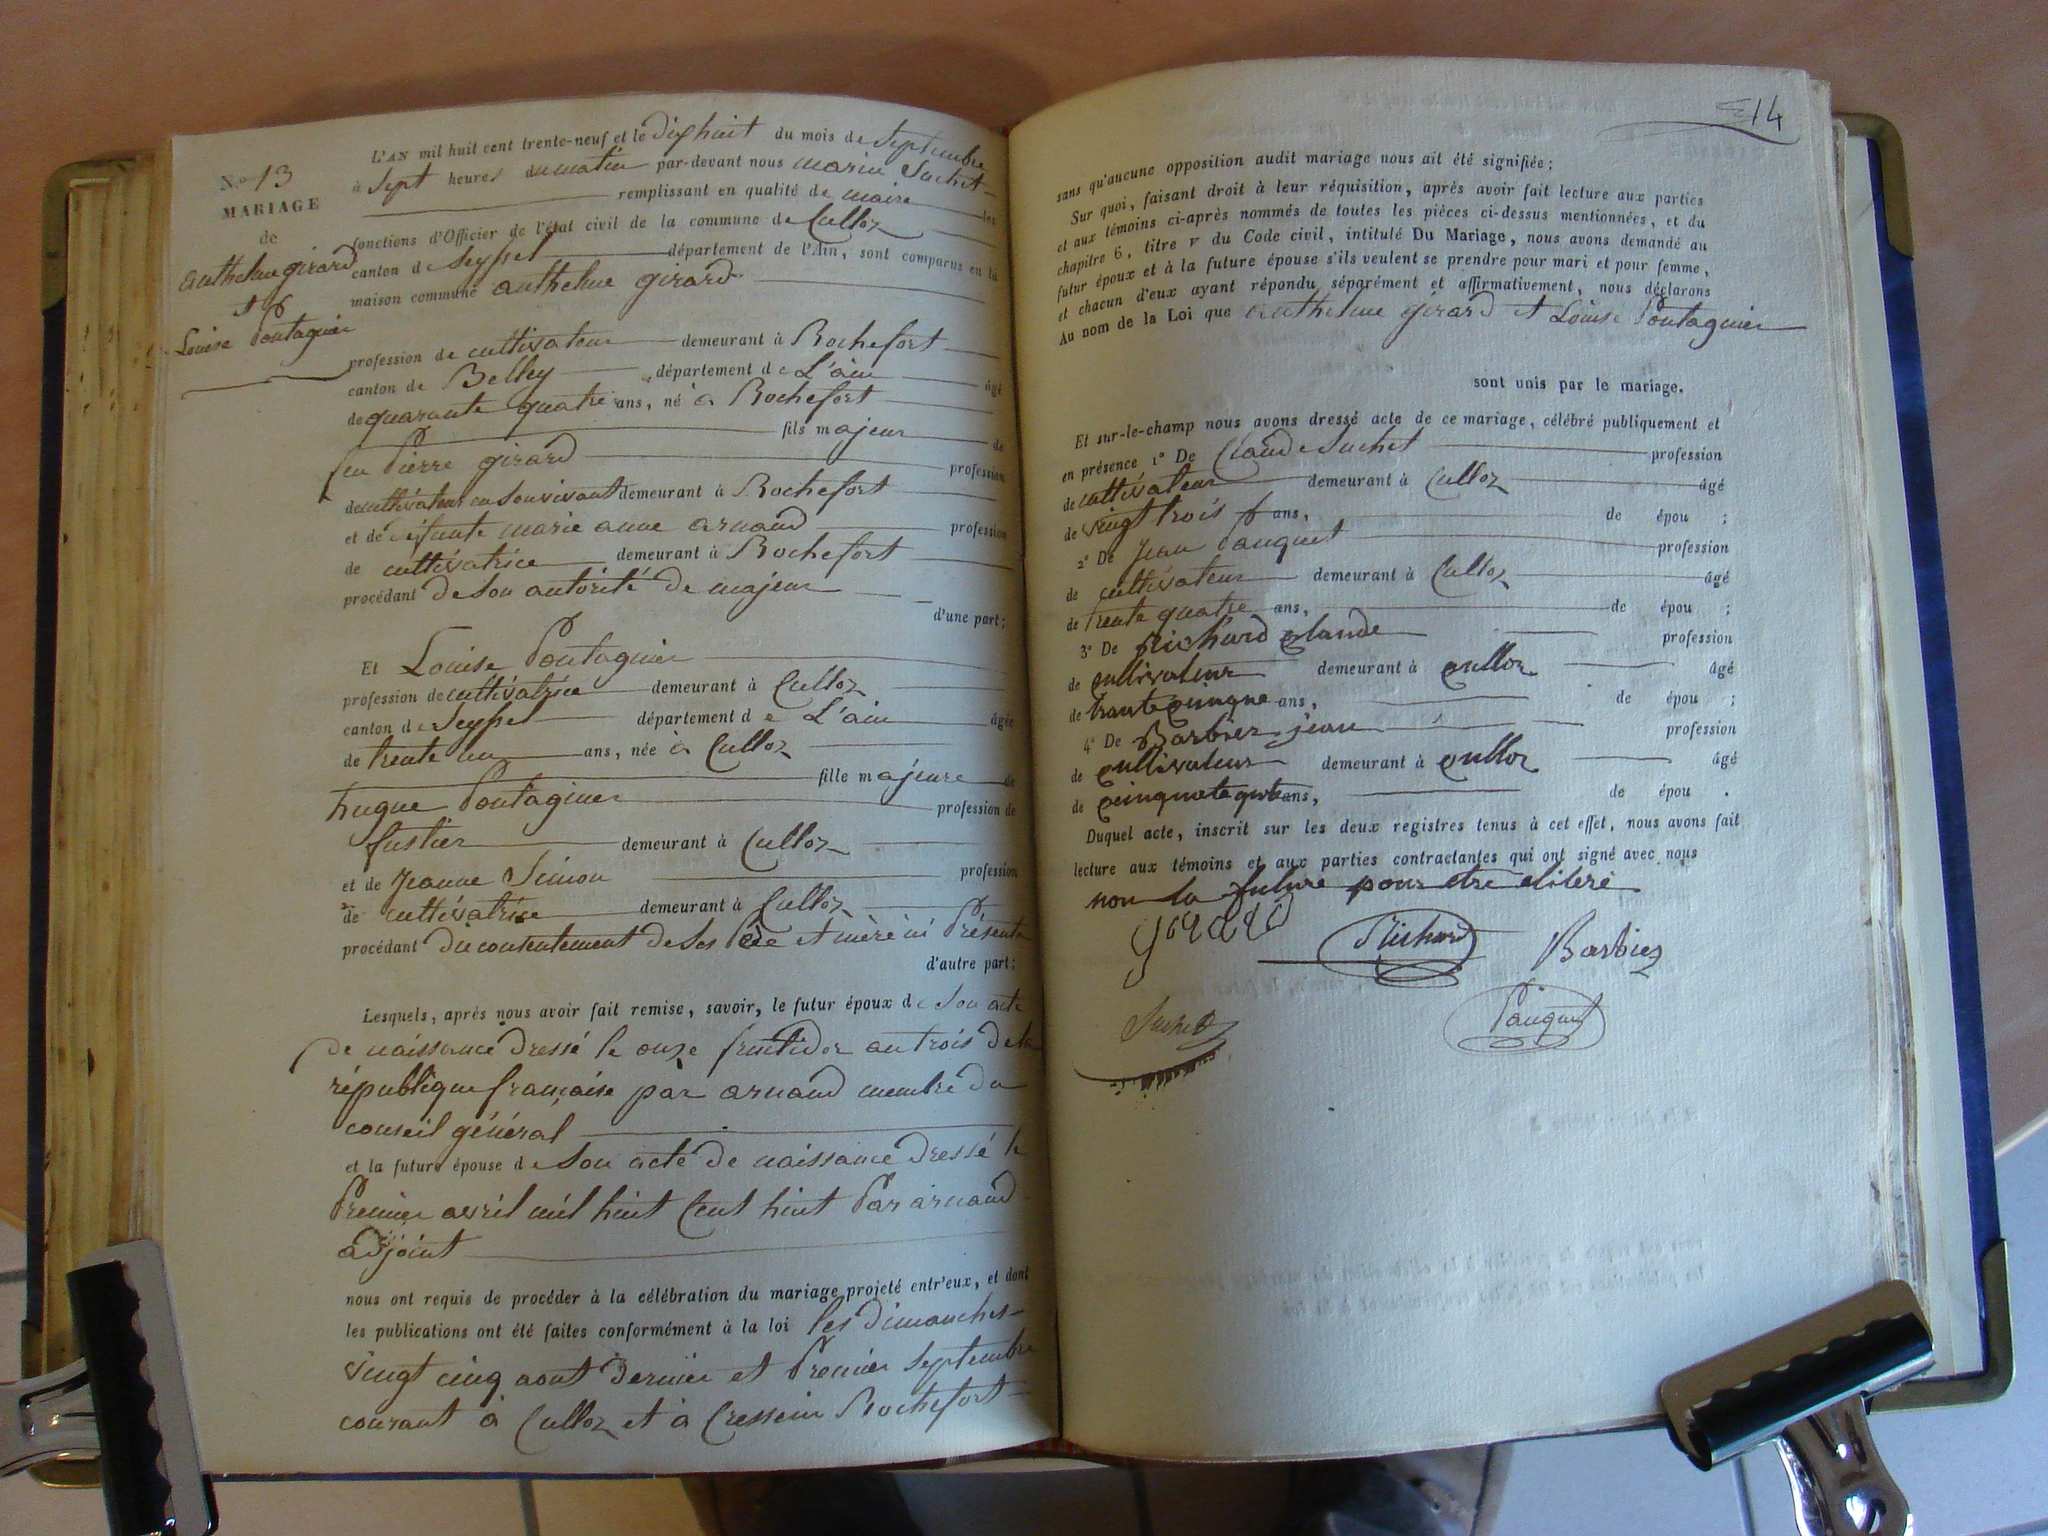 No 13
MARIAGE
de
anthelme girard
et
Louise Pontagnier
L'AN mil huit cent trente-neuf et le dix huit du mois de septembre
à sept heures du matin par-devant nous marin Suchet
remplissant en qualité de maire les
fonctions d'Officier de l'état civil de la commune de Culloz
canton de Seyssel département de l'Ain, sont comparus en la
maison commune anthelme girard
profession de cultivateur demeurant à Rochefort
canton de Belley département de L'ain âgé
de quarante quatre ans, né à Rochefort
fils majeur de
feu Pierre girard profession
de cultivateur en son vivant demeurant à Rochefort
et de défunte marie anne arnaud profession
de cultivatrice demeurant à Rochefort
procédant de son autorité de majeur
d'une part;
Et Louise Pontagnier
profession de cultivatrice demeurant à Culloz
canton de Seyssel département de L'ain âgée
de trente un ans, née à Culloz
fille majeure de
hugue Pontagnier profession de
fustier demeurant à Culloz
et de Jeanne Simon profession
de cultivatrice demeurant à Culloz
procédant du consentement de ses Père et mère ici Présents
d'autre part;
Lesquels, après nous avoir fait remise, savoir, le futur époux de son acte
de naissance dressé le onze fructidor an trois de la
république française par arnaud membre du
conseil général
et la future épouse de son acte de naissance dressé le
Premier avril mil huit Cent huit Par arnaud
adjoint
nous ont requis de procéder à la célébration du mariage projeté entr'eux, et dont
les publications ont été faites conformément à la loi les dimanches
vingt cinq aout dernier et Premier septembre
courant à Culloz et à Cressein Rochefort
14
sans qu'aucune opposition audit mariage nous ait été signifiée;
Sur quoi, faisant droit à leur réquisition, après avoir fait lecture aux parties
et aux témoins ci-après nommés de toutes les pièces ci-dessus mentionnées, et du
chapitre 6, titre V du Code civil, intitulé Du Mariage, nous avons demandé au
futur époux et à la future épouse s'ils veulent se prendre pour mari et pour femme,
et chacun d'eux ayant répondu séparément et affirmativement, nous déclarons
Au nom de la Loi que anthelme girard et Louise Pontagnier
sont unis par le mariage.
Et sur-le-champ nous avons dressé acte de ce mariage, célébré publiquement et
en présence 1° De Claude Suchet profession
de cultivateur demeurant à Culloz âgé
de vingt trois ans, de épou ;
2° De Jean Pauquet profession
de cultivateur demeurant à Culloz âgé
de trente quatre ans, de épou ;
3° De Richard Claude profession
de cultivateur demeurant à culloz âgé
de trante cinque ans, de épou ;
4° De Barbier jean profession
de cultivateur demeurant à culloz âgé
de ans, de épou .
Duquel acte, inscrit sur les deux registres tenus à cet effet, nous avons fait
lecture aux témoins et aux parties contractantes qui ont signé avec nous
non la future pour etre eliteré
girard
Richard
Barbier
Suchet
Pauquet